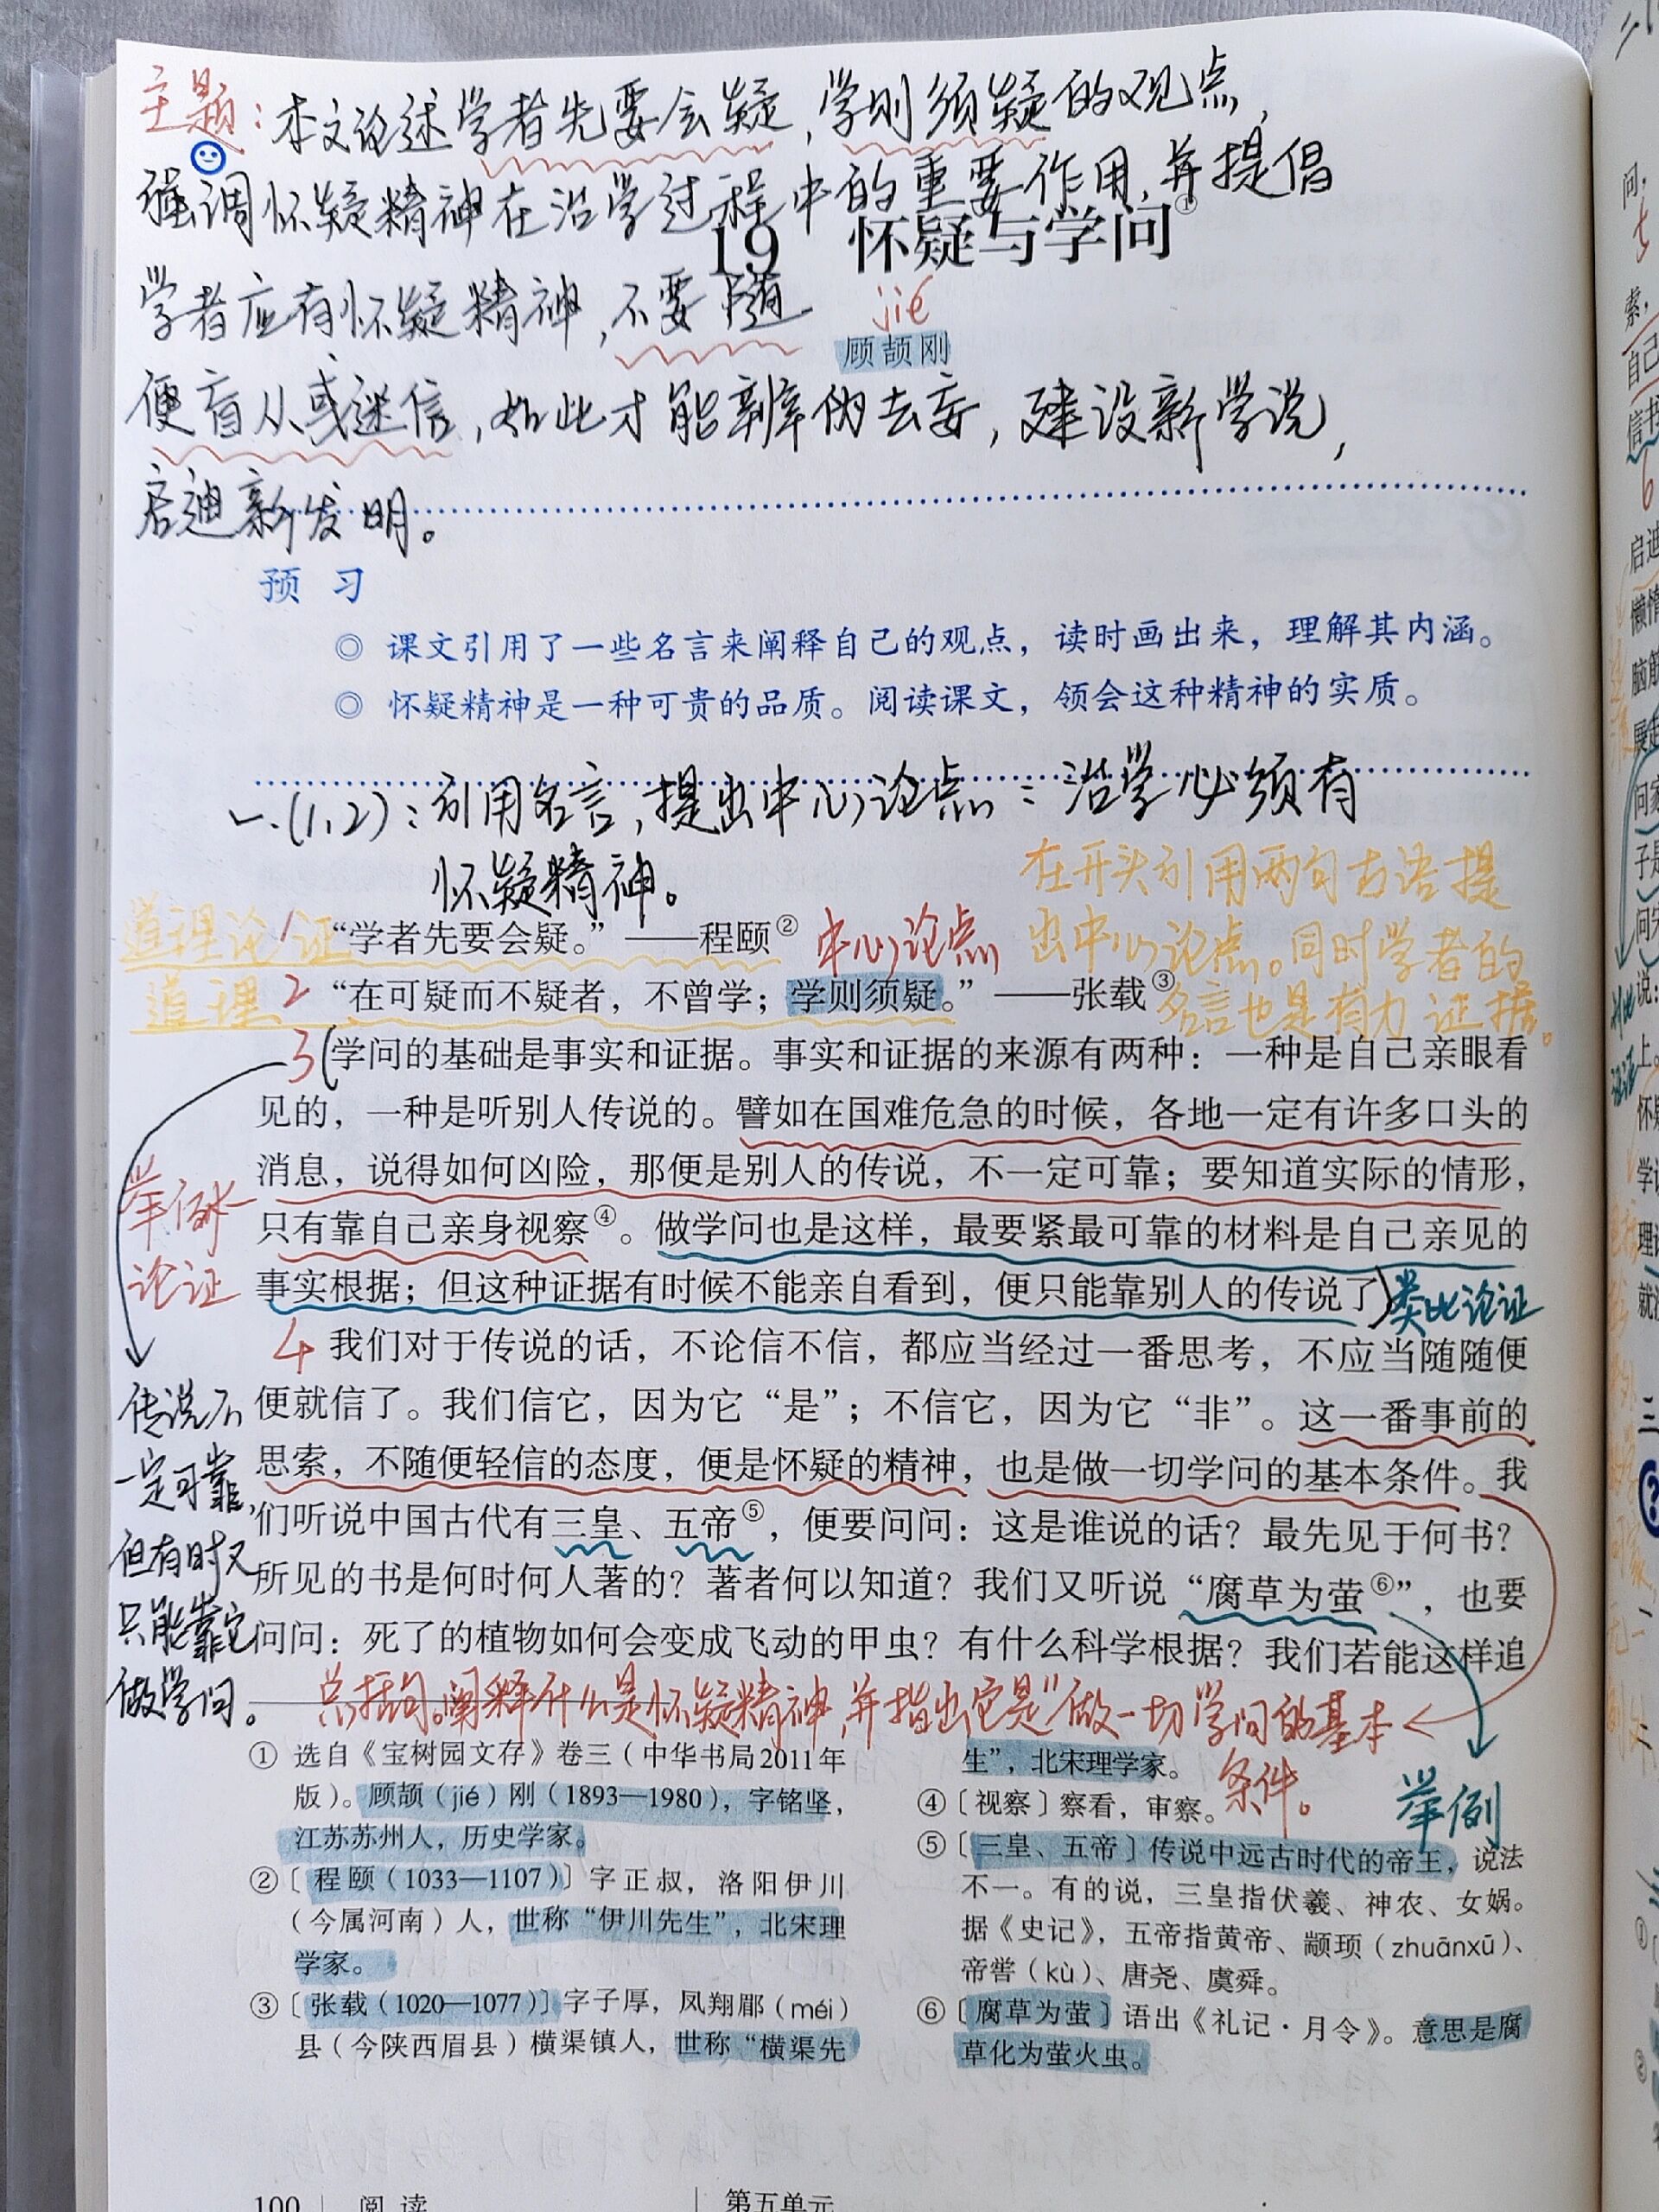 主题：本文论述学者先要会疑，学则须疑的观点，
强调怀疑精神在治学过程中的重要作用，并提倡
19 怀疑与学问①
学者应有怀疑精神，不要随
jié
顾颉刚
便盲从或迷信，如此才能辨伪去妄，建设新学说，
启迪新发明。
预 习
◎ 课文引用了一些名言来阐释自己的观点，读时画出来，理解其内涵。
◎ 怀疑精神是一种可贵的品质。阅读课文，领会这种精神的实质。
一.(1,2)：引用名言，提出中心论点：治学必须有
怀疑精神。
在开头引用两句古语提
出中心论点。同时学者的
名言也是有力证据。
道理论证 1 “学者先要会疑。”——程颐② 中心论点
道理 2 “在可疑而不疑者，不曾学；学则须疑。”——张载③
3 学问的基础是事实和证据。事实和证据的来源有两种：一种是自己亲眼看
见的，一种是听别人传说的。譬如在国难危急的时候，各地一定有许多口头的
消息，说得如何凶险，那便是别人的传说，不一定可靠；要知道实际的情形，
只有靠自己亲身视察④。做学问也是这样，最要紧最可靠的材料是自己亲见的
事实根据；但这种证据有时候不能亲自看到，便只能靠别人的传说了 类比论证
举例
论证
4 我们对于传说的话，不论信不信，都应当经过一番思考，不应当随随便
便就信了。我们信它，因为它“是”；不信它，因为它“非”。这一番事前的
思索，不随便轻信的态度，便是怀疑的精神，也是做一切学问的基本条件。我
们听说中国古代有三皇、五帝⑤，便要问问：这是谁说的话？最先见于何书？
所见的书是何时何人著的？著者何以知道？我们又听说“腐草为萤⑥”，也要
问问：死了的植物如何会变成飞动的甲虫？有什么科学根据？我们若能这样追
传说不
一定可靠，
但有时又
只能靠它
做学问。
总括句。阐释什么是怀疑精神，并指出它是“做一切学问的基本
条件。
举例
① 选自《宝树园文存》卷三（中华书局2011年
版）。顾颉（jié）刚（1893—1980），字铭坚，
江苏苏州人，历史学家。
②〔程颐（1033—1107）〕字正叔，洛阳伊川
（今属河南）人，世称“伊川先生”，北宋理
学家。
③〔张载（1020—1077）〕字子厚，凤翔郿（méi）
县（今陕西眉县）横渠镇人，世称“横渠先
生”，北宋理学家。
④〔视察〕察看，审察。
⑤〔三皇、五帝〕传说中远古时代的帝王，说法
不一。有的说，三皇指伏羲、神农、女娲。
据《史记》，五帝指黄帝、颛顼（zhuānxū）、
帝喾（kù）、唐尧、虞舜。
⑥〔腐草为萤〕语出《礼记·月令》。意思是腐
草化为萤火虫。
100 阅 读 第五单元